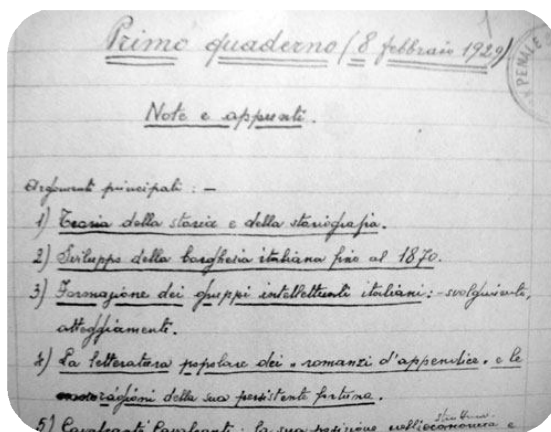 Primo quaderno (8 febbraio 1929)
PENALE
Note e appunti.
Argomenti principali : —
1) Teoria della storia e della storiografia.
2) Sviluppo della borghesia italiana fino al 1870.
3) Formazione dei gruppi intellettuali italiani: - svolgimento,
atteggiamenti.
4) La letteratura popolare dei "romanzi d'appendice" e le
ragioni della sua persistente fortuna.
struttura
5) Cavalcante Cavalcanti: la sua posizione nell'economia e